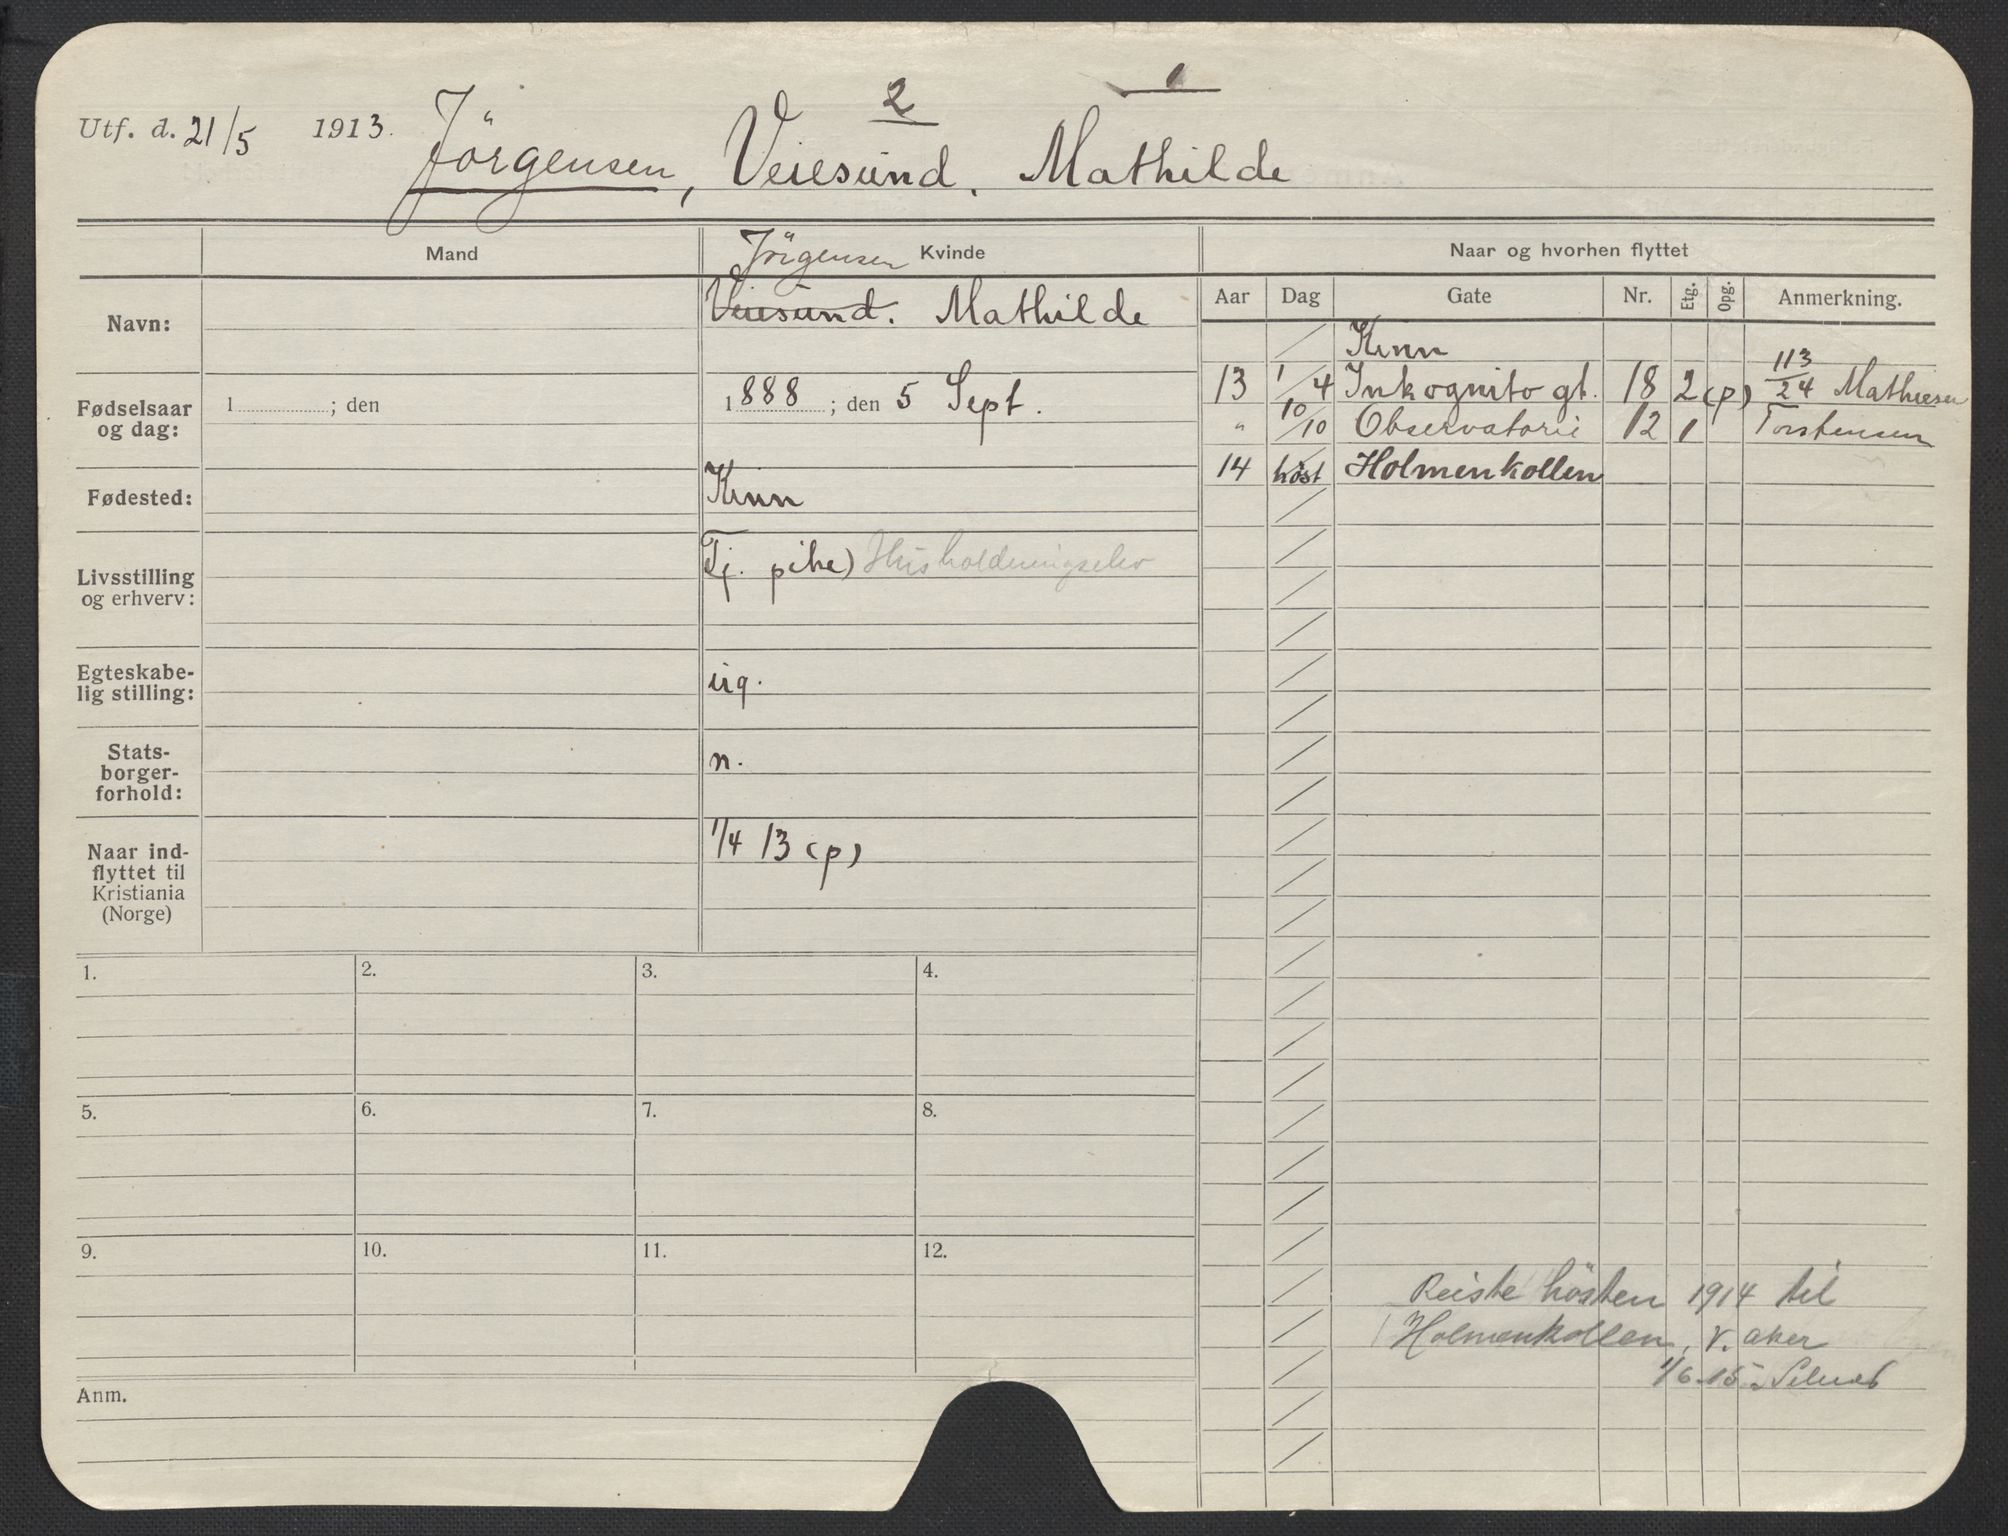 2 1
Utf. d. 21/5 1913. Jörgensen, Veiesund. Mathilde
Mand
Jörgensen Kvinde
Naar og hvorhen flyttet
Navn:
Veiesund. Mathilde
Fødselsaar og dag:
1 ; den
1888 ; den 5 Sept.
Fødested:
Kinn
Livsstilling og erhverv:
Tj. pike) Husholdningselev
Egteskabelig stilling:
ug.
Statsborgerforhold:
n.
Naar indflyttet til Kristiania (Norge)
1/4 13 (p)
Aar Dag Gate Nr. Etg. Opg. Anmerkning.
Kinn
13 1/4 Inkognito gt. 18 2 (p) 113/24 Mathiesen
" 10/10 Observatorie 12 1 Torstensen
14 höst Holmenkollen
1. 2. 3. 4.
5. 6. 7. 8.
9. 10. 11. 12.
Anm.
Reiste hösten 1914 til
Holmenkollen, v. aker
1/6 15